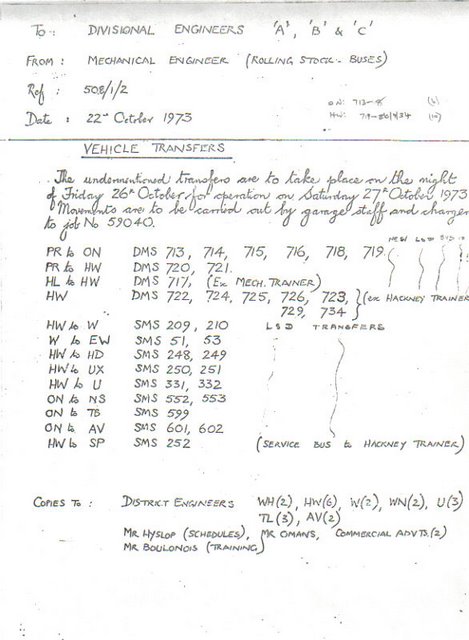 To : DIVISIONAL ENGINEERS 'A', 'B' & 'C'
FROM : MECHANICAL ENGINEER (ROLLING STOCK - BUSES)
Ref : 508/1/2
Date : 22nd October 1973
VEHICLE TRANSFERS
The undermentioned transfers are to take place on the night
of Friday 26th October for operation on Saturday 27th October 1973
Movements are to be carried out by garage staff and charged
to job No 59040.
PR to ON DMS 713, 714, 715, 716, 718, 719
PR to HW DMS 720, 721.
HL to HW DMS 717, (Ex MECH. TRAINER)
HW DMS 722, 724, 725, 726, 723, (ex HACKNEY TRAINER
729, 734
LSD TRANSFERS
HW to W SMS 209, 210
W to EW SMS 51, 53
HW to HD SMS 248, 249
HW to UX SMS 250, 251
HW to U SMS 331, 332
ON to NS SMS 552, 553
ON to TB SMS 599
ON to AV SMS 601, 602
HW to SP SMS 252 (SERVICE BUS to HACKNEY TRAINER)
COPIES TO : DISTRICT ENGINEERS WH(2), HW(6), W(2), WN(2), U(3)
TL(3), AV(2)
MR HYSLOP (SCHEDULES), MR OMANS, COMMERCIAL ADVTS.(2)
MR BOULONOIS (TRAINING)